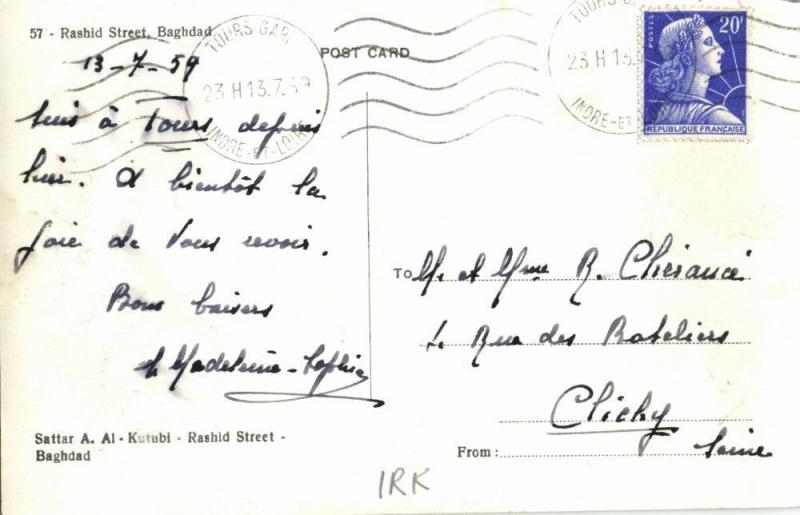 57 - Rashid Street, Baghdad
POST CARD
TOURS GARE
23 H 13.7.59
INDRE-ET-LOIRE
TOURS GA
23 H 13.
INDRE-ET-
POSTES
20F
RÉPUBLIQUE FRANÇAISE
13-7-59
suis à Tours depuis
hier. A bientôt la
joie de vous revoir.
Bons baisers
Madeleine-Sophie
To M. et Mme R.
4 Rue des Bateliers
Clichy
Seine
From :
Sattar A. Al - Kutubi - Rashid Street -
Baghdad
IRK